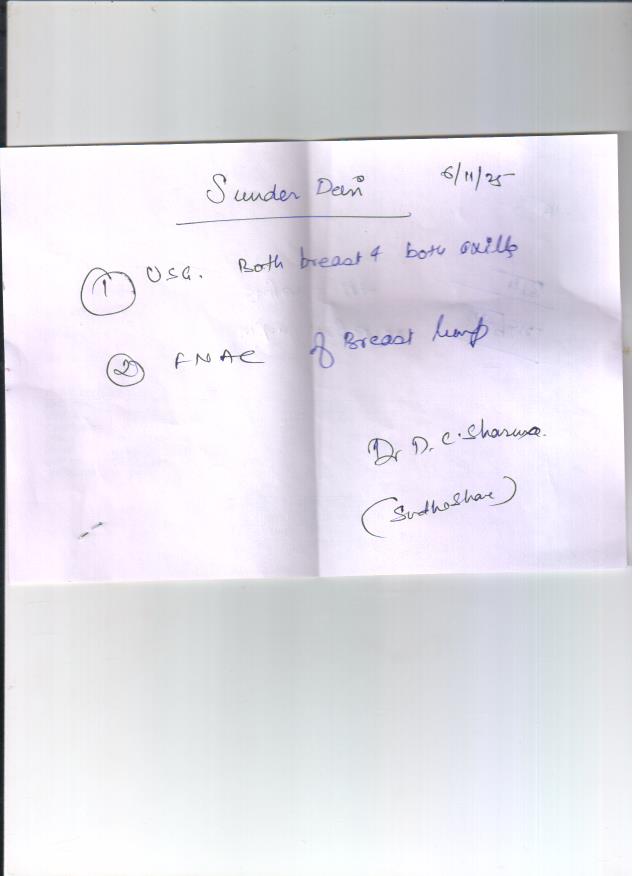 Sunder Devi
6/11/25
① USG. Both breast & both axilla
② FNAC of Breast lump
Dr D. C. Sharma.